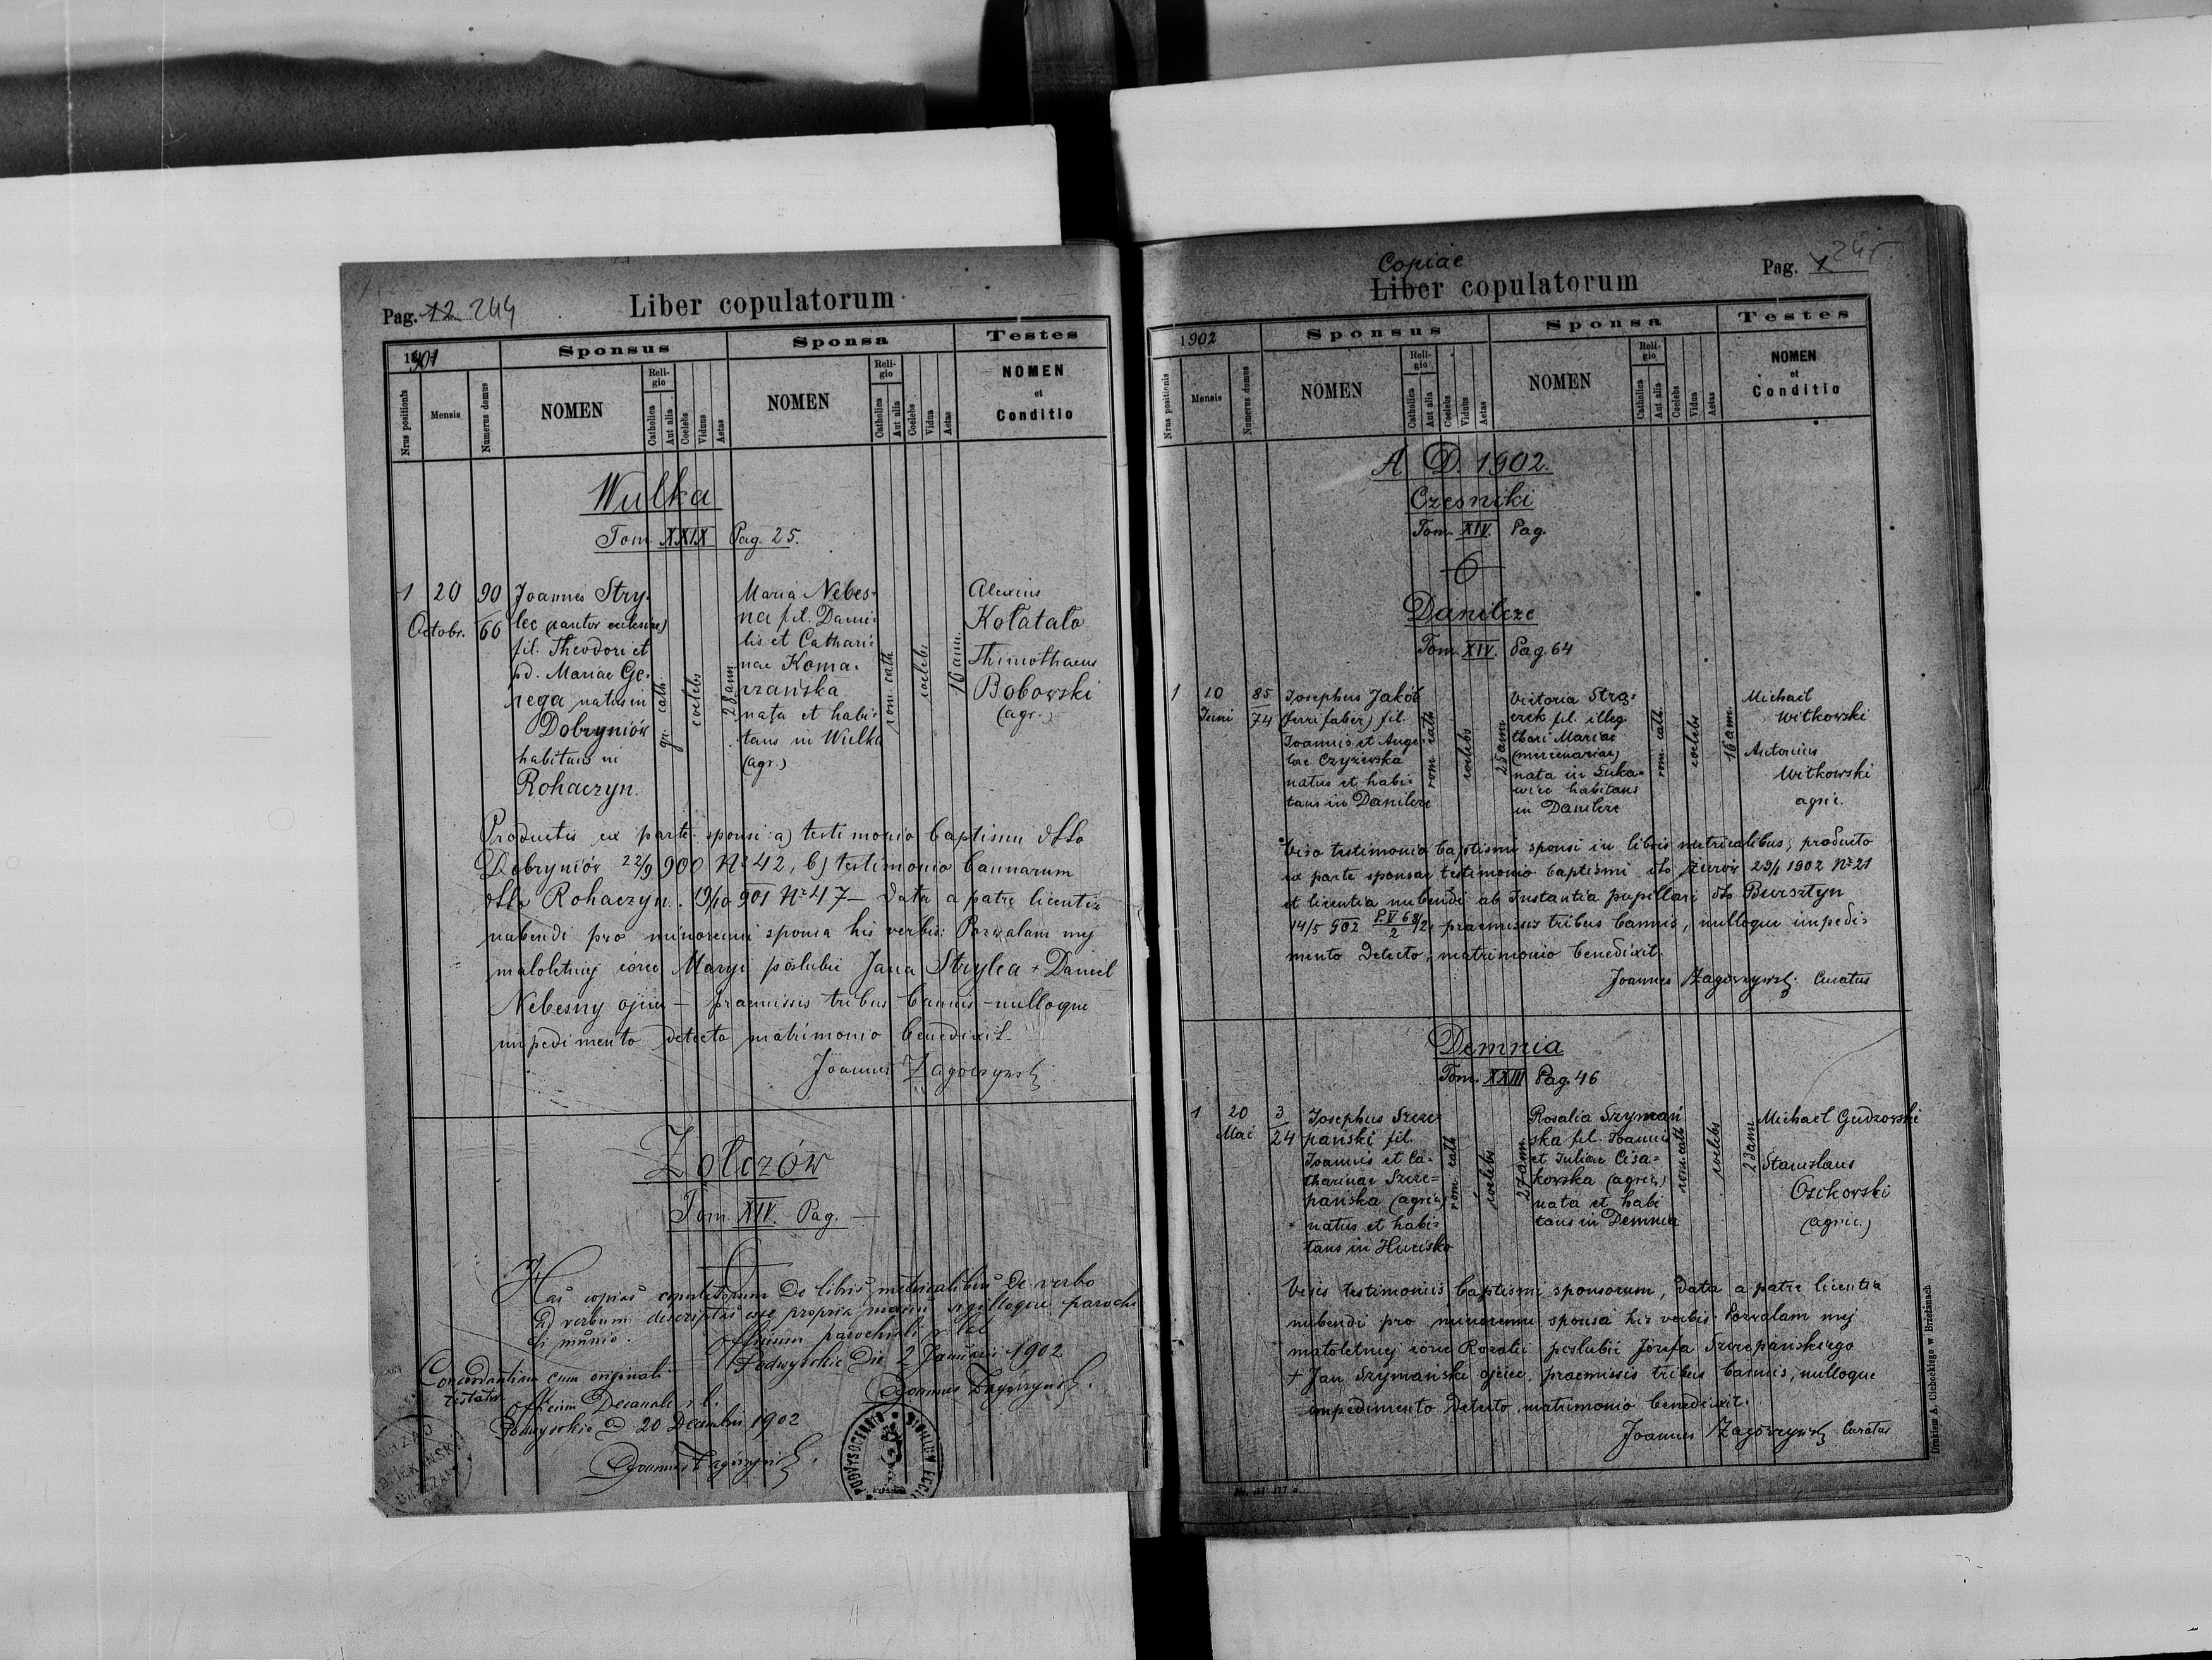 Pag. 12 244
Liber copulatorum
1901
Sponsus
Sponsa
Testes
Nrus positionis
Mensis
Numerus domus
NOMEN
Religio
Catholica
Aut alia
Coelebs
Viduus
Aetas
NOMEN
Religio
Catholica
Aut alia
Coelebs
Vidua
Aetas
NOMEN
et
Conditio
Wulka
Tom. XXIX Pag. 25.
1
20
Octobr.
90
66
Joannes Stry-
lec (cantor ecclesiae)
fil. Theodori et
pd. Mariae Ge-
rega natus in
Dobryniów
habitans in
Rohaczyn.
gr. cath.
coelebs
28 ann.
Maria Nebes-
na fil. Danie-
lis et Cathari-
nae Koma-
rzańska
nata et habi-
tans in Wulka
(agr.)
rom. cath.
coelebs
16 ann.
Alexius
Kołatało
Thimothaeus
Bobowski
(agr.)
Productis ex parte sponsi: a) testimonio baptismi dtto
Dobryniów 22/9 900 No 42, b) testimonio bannorum
dtto Rohaczyn. 19/10 901 No 47 – data a patre licentia
nubendi pro minorenni sponsa his verbis: Pozwalam mej
małoletniej córce Maryi poślubić Jana Strylca + Daniel
Nebesny ojciec – praemissis tribus bannis – nulloque
impedimento detecto matrimonio benedixit.
Joannes Zagórzyński
Żołczów
Tom. XIV. Pag. —
Has copias copulatorum de libris metricalibus de verbo
ad verbum descriptas esse propria manu sigilloque parochi-
ali munio.
Officium parochiale r. lat.
Podwysokie Die 2 Januarii 1902
Joannes Zagórzyński.
Concordantiam cum originali
testatur
Officium Decanale r. l.
Podwysokie D 20 Decembris 1902
Joannes Zagórzyński.
Copiae
Liber copulatorum
Pag. 1 245
1902
Sponsus
Sponsa
Testes
Nrus positionis
Mensis
Numerus domus
NOMEN
Religio
Catholica
Aut alia
Coelebs
Viduus
Aetas
NOMEN
Religio
Catholica
Aut alia
Coelebs
Vidua
Aetas
NOMEN
et
Conditio
A. D. 1902.
Czesniki
Tom. XIV. Pag.
Danilcze
Tom. XIV. Pag. 64
1
10
Juni
85
74
Josephus Jakób
(ferrifaber) fil.
Joannis et Ange-
lae Czyżewska
natus et habi-
tans in Danilcze
rom. cath
coelebs
25 ann.
Victoria Stra-
czek fil. illeg.
thori Mariae
(mercenariae)
nata in Łuka-
wiec habitans
in Danilcze
rom. cath.
coelebs
16 ann.
Michael
Witkowski
Antonius
Witkowski
agric.
Viso testimonio baptismi sponsi in libris metricalibus, producto
ex parte sponsae testimonio baptismi dto Żurów 29/1 1902 No 21
et licentia nubendi ab Instantia pupillari dto Bursztyn
14/5 902 P. V 68/2 2, praemissis tribus bannis, nulloque impedi-
mento detecto, matrimonio benedixit.
Joannes Zagórzyński Curatus
Demnia
Tom. XXIII Pag. 46
1
20
Mai
3
24
Josephus Szcze-
pański fil.
Joannis et Ca-
tharinae Szcze-
pańska (agric.)
natus et habi-
tans in Hucisko
rom. cath
coelebs
27 ann.
Rosalia Szymań
ska fil. Joannis
et Juliae Cisa-
kowska (agric.)
nata et habi
tans in Demnia
rom. cath
coelebs
23 ann.
Michael Gudzowski
Stanislaus
Osikowski
(agric.)
Visis testimoniis baptismi sponsorum, data a patre licentia
nubendi pro minorenni sponsa his verbis Pozwalam mej
małoletniej córce Rozalii poślubić Józefa Szczepańskiego
+ Jan Szymański ojciec, praemissis tribus bannis, nulloque
impedimento detecto, matrimonio benedixit.
Joannes Zagórzyński Curatus
Drukiem A. Cichockiego w Brzeżanach